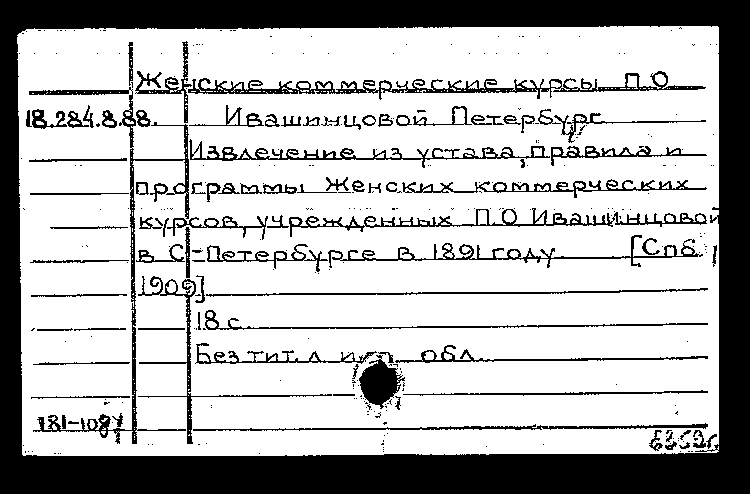 Женские коммерческие курсы П.О
18.284.8.88. Ивашинцовой Петербург
Извлечение из устава, правила и
программы Женских коммерческих
курсов, учрежденных П.О Ивашинцовой
в С-Петербурге в 1891 году [Спб,
1909]
18 с.
Без тит. л и обл.
181-1087